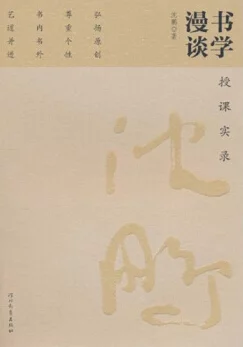 书学
漫谈
授课实录
沈鹏 著
弘扬原创
尊重个性
书内书外
艺道并进
沈鹏